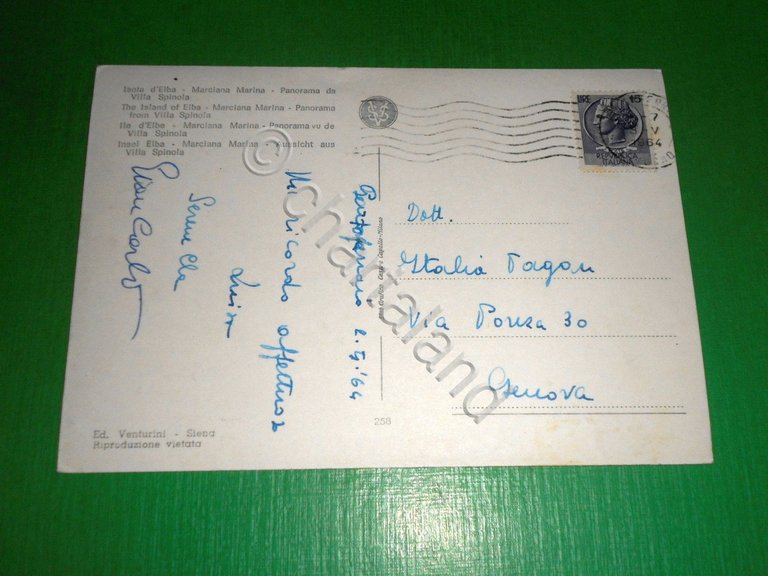 Isola d'Elba - Marciana Marina - Panorama da
Villa Spinola
The Island of Elba - Marciana Marina - Panorama
from Villa Spinola
Ile d'Elbe - Marciana Marina - Panorama vu de
Villa Spinola
Insel Elba - Marciana Marina - Aussicht aus
Villa Spinola
LIRE 15
REPVBBLICA
ITALIANA
7
1964
Portoferraio 2.5.'64
Un ricordo affettuoso
Luisa
Serenella
Gian Carlo
Dott.
Italia Pagan
Via Ponza 30
Genova
258
Ed. Venturini - Siena
Riproduzione vietata
© chartaland